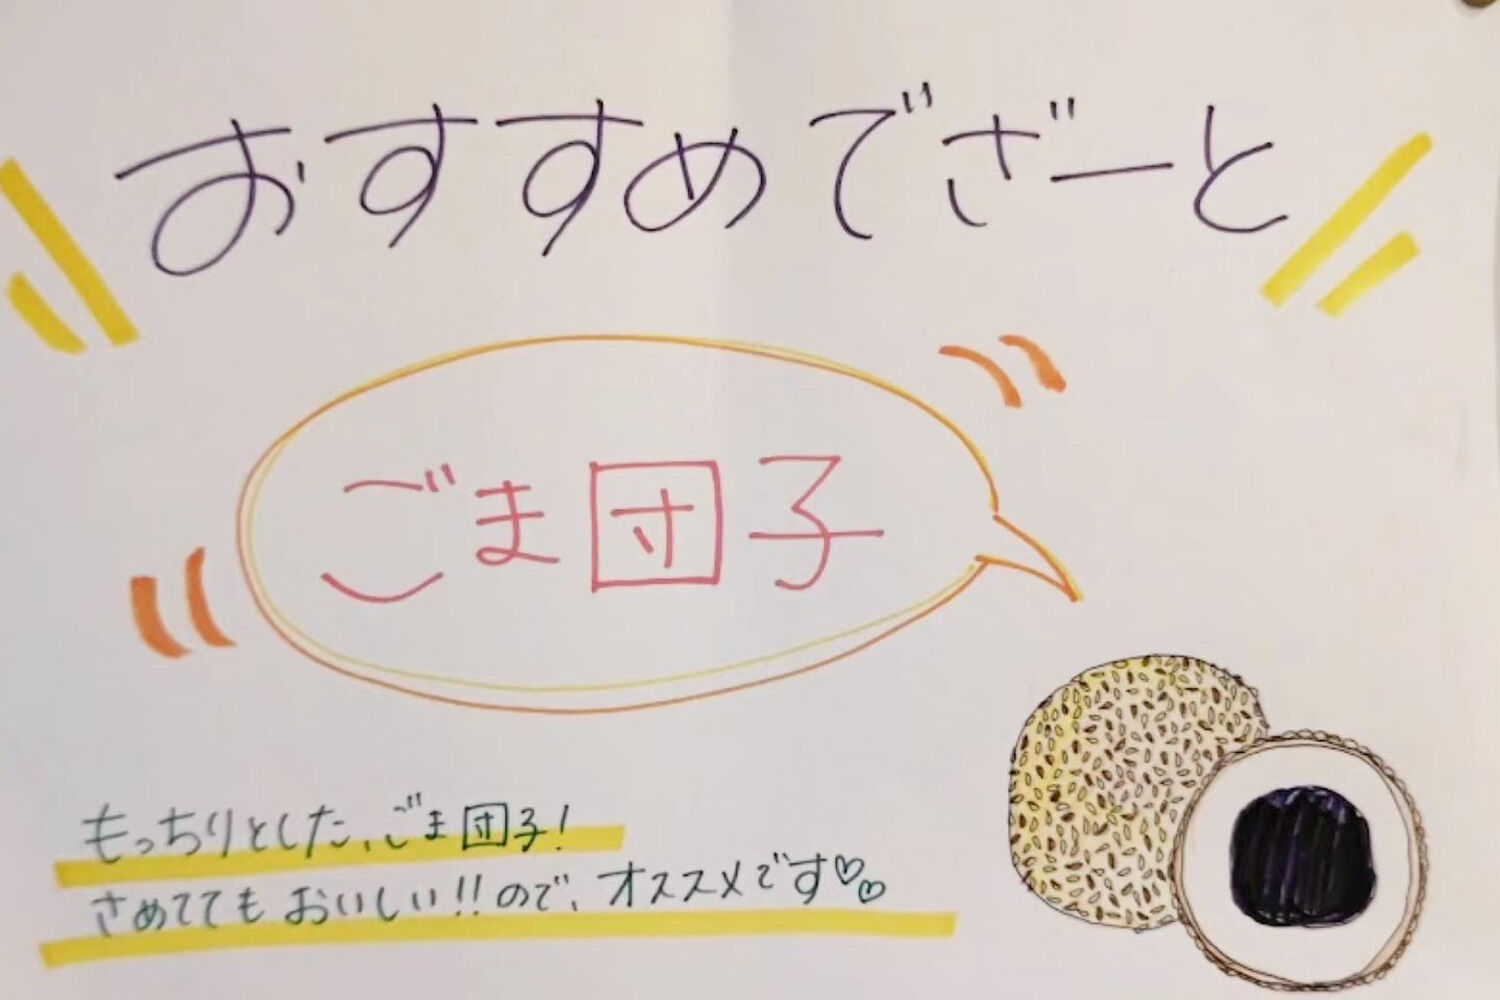 おすすめでざーと
ごま団子
もっちりとした、ごま団子!
さめててもおいしい!!ので、オススメです♡♡